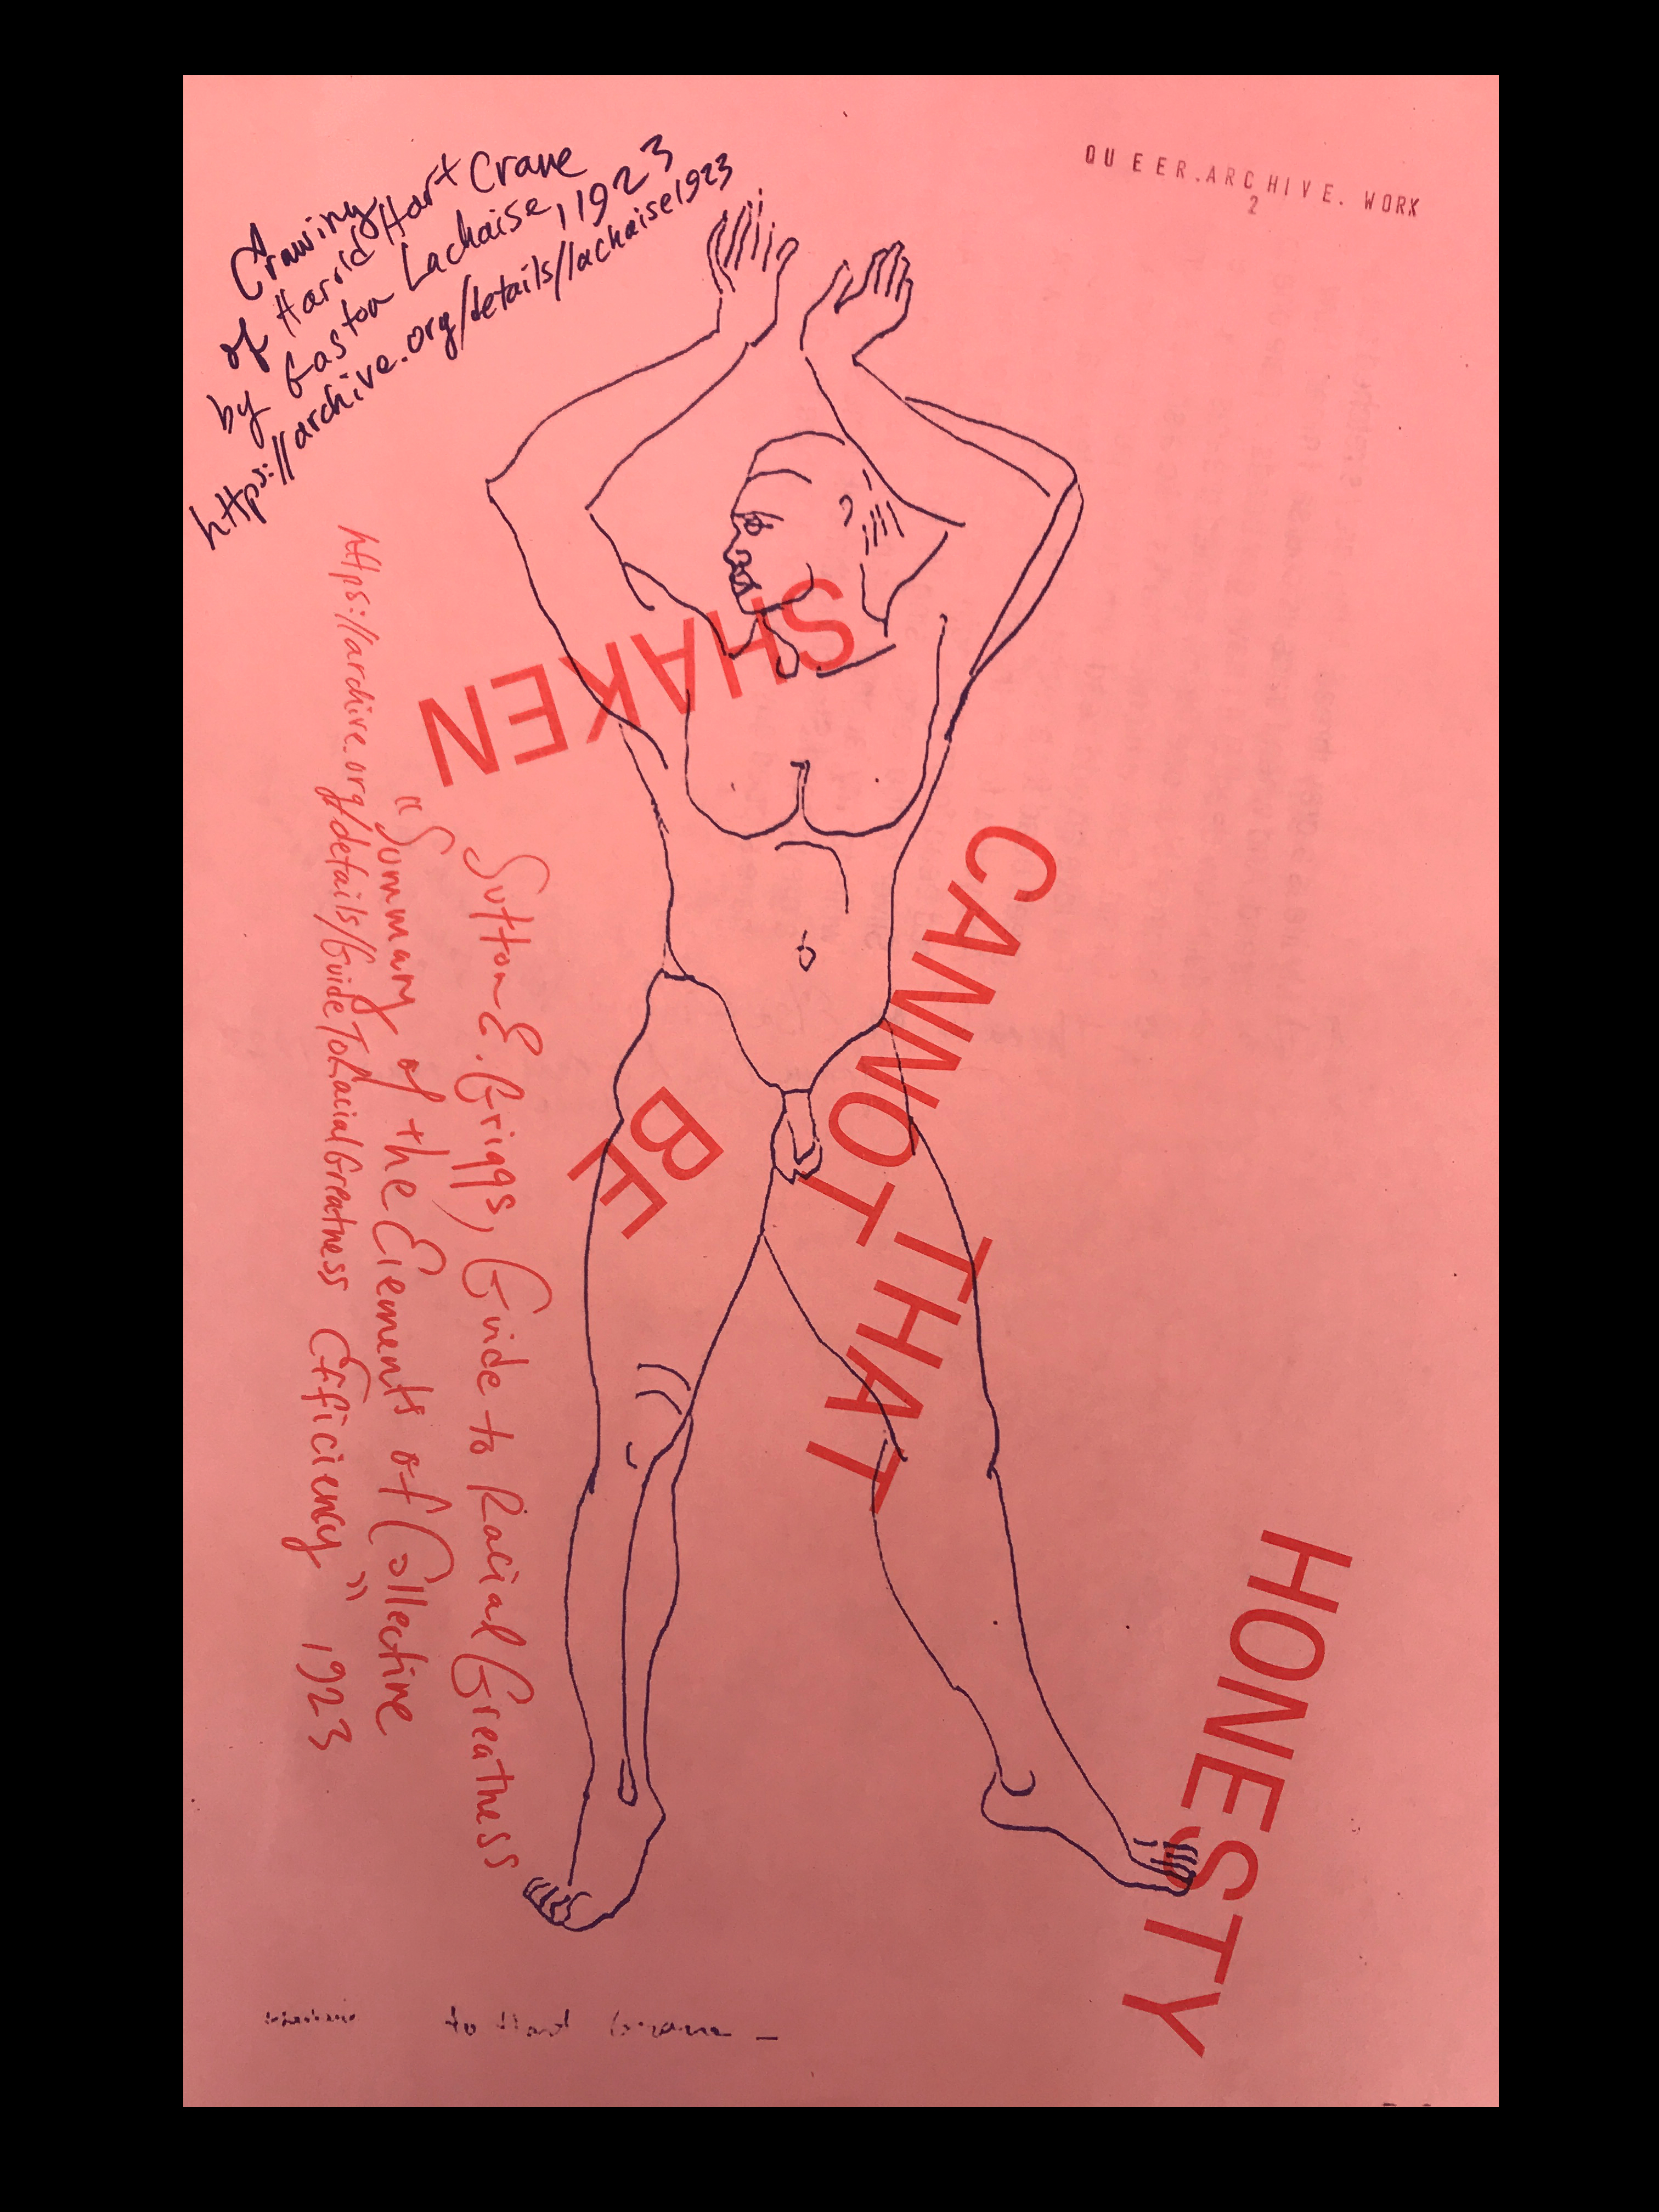 QUEER.ARCHIVE.WORK
2
Drawing
of Harold Hart Crane
by Gaston Lachaise, 1923
https://archive.org/details/lachaise1923
HONESTY
THAT
CANNOT
BE
SHAKEN
Sutton E. Griggs, Guide to Racial Greatness
"Summary of the Elements of Collective
Efficiency" 1923
https://archive.org/details/GuideToRacialGreatness
to Hart Crane –